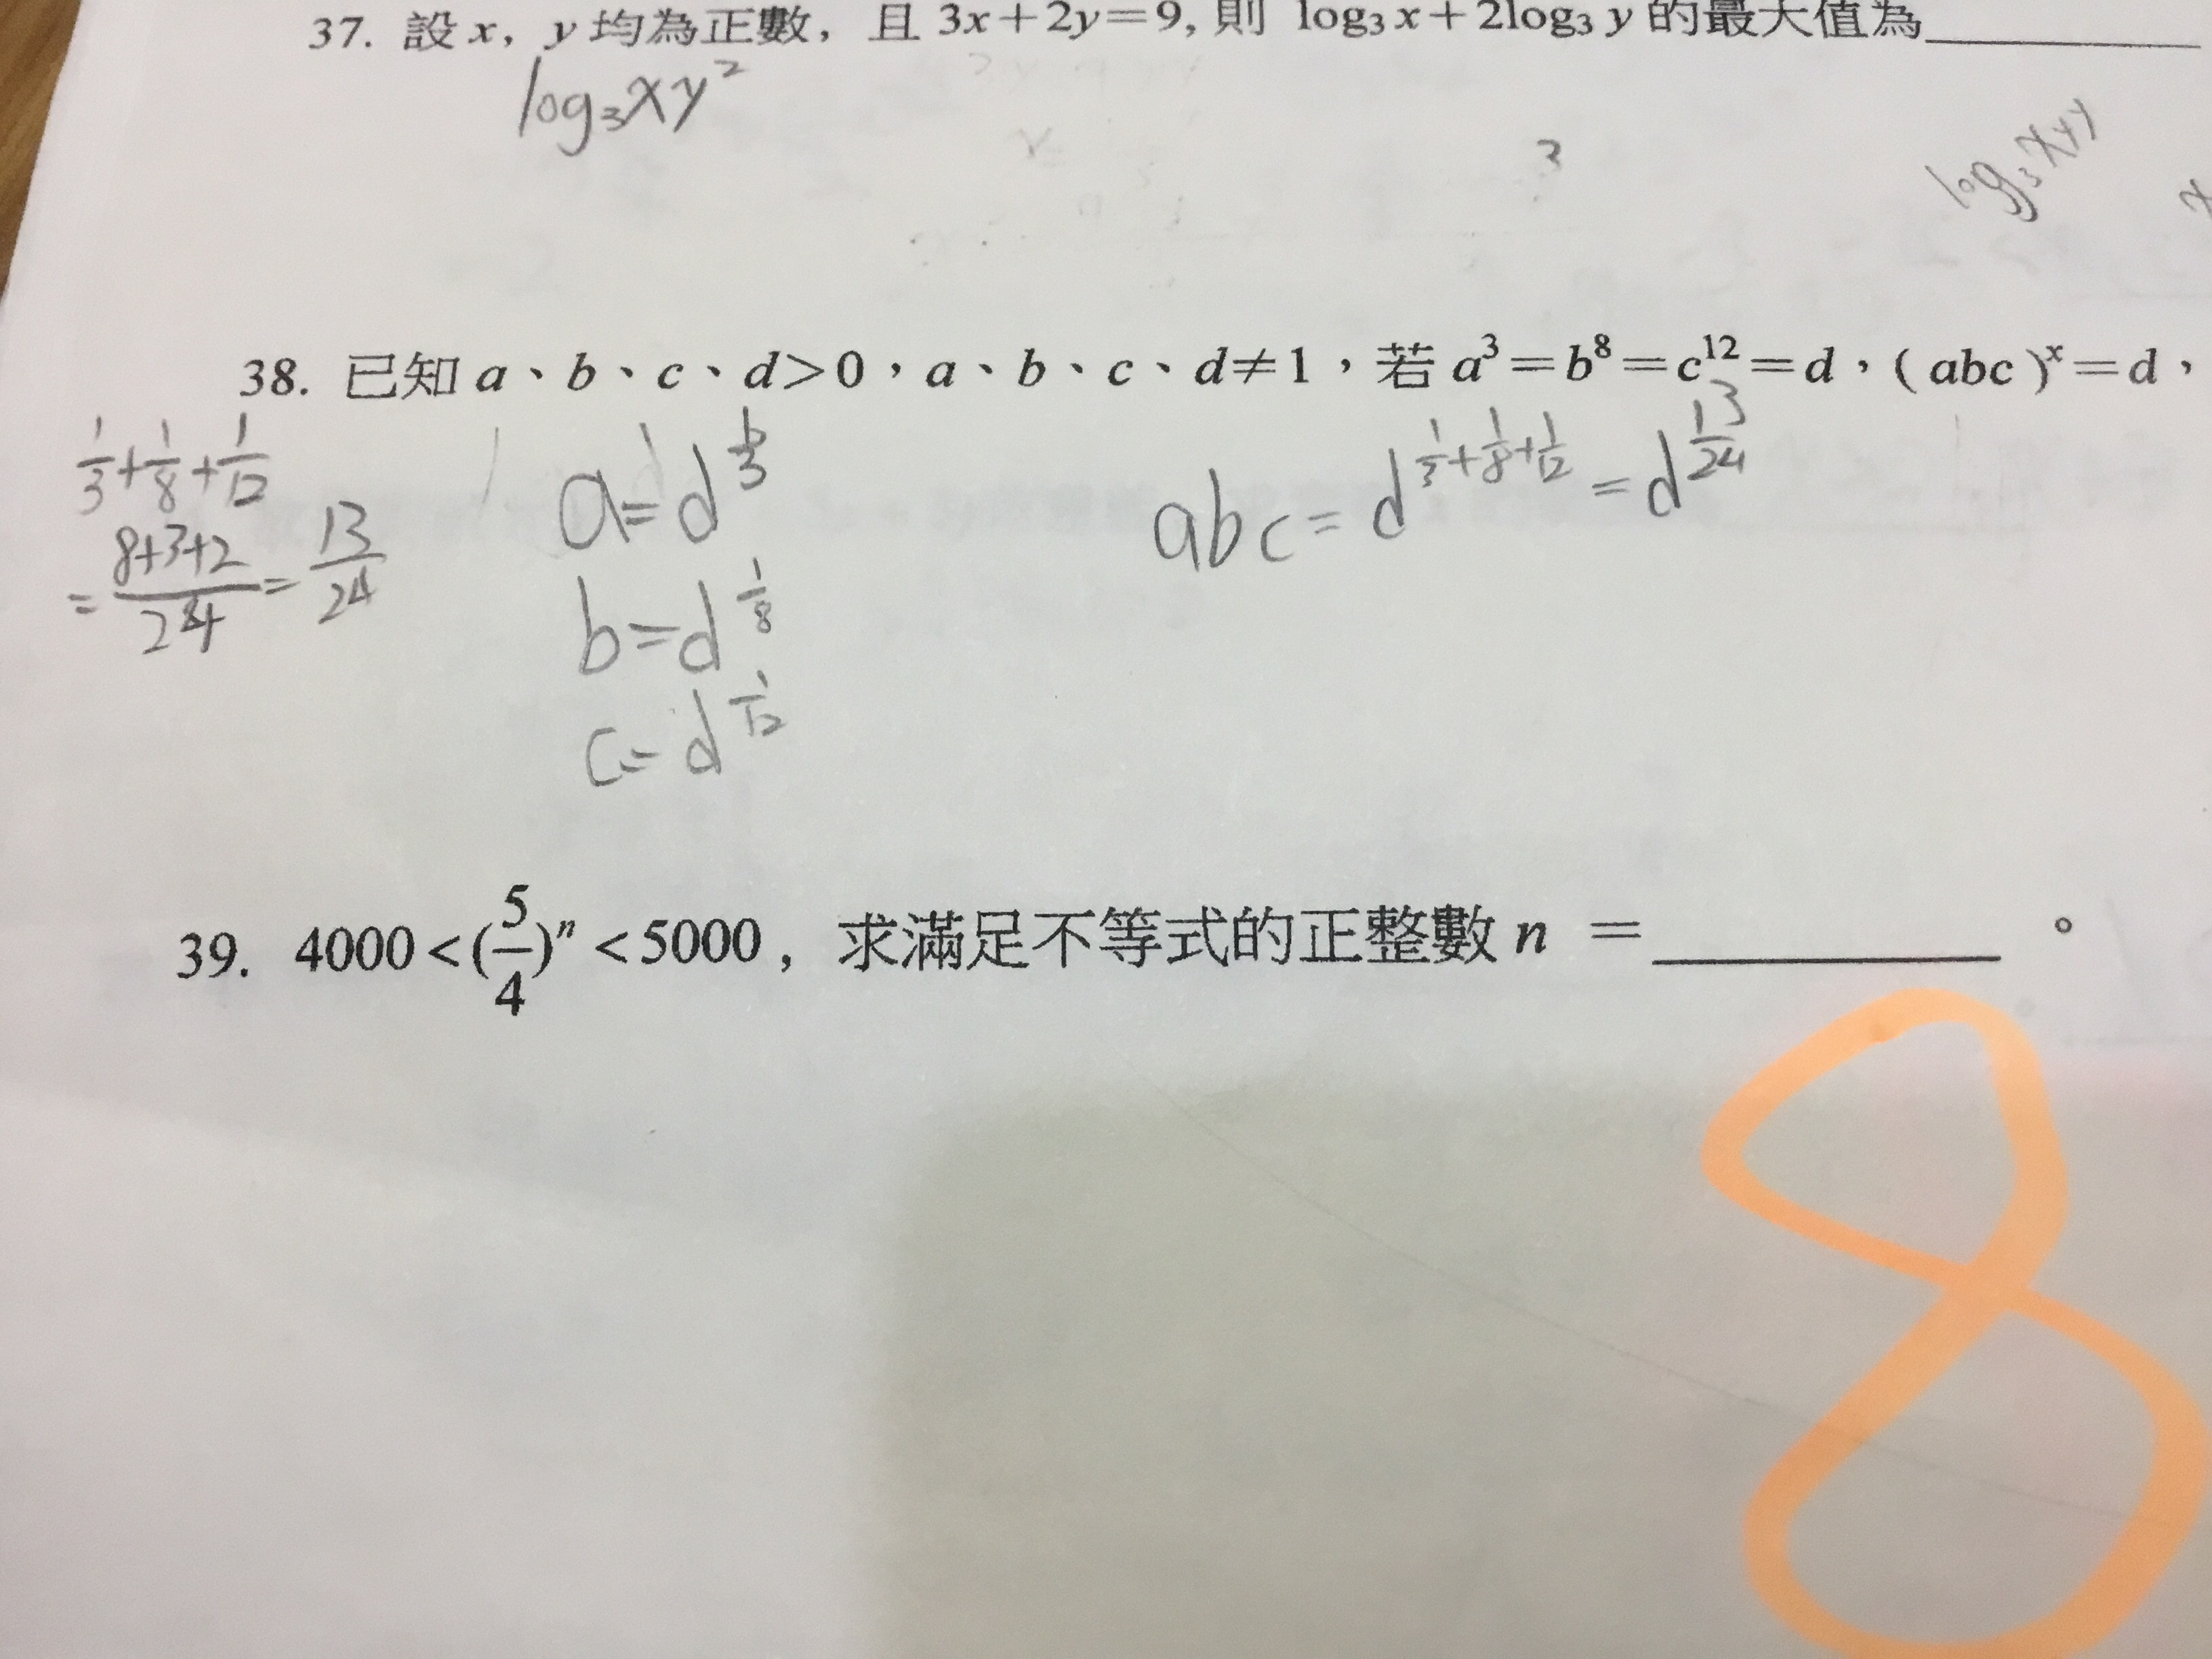 37. 設 x, y 均為正數, 且 3x+2y=9, 則 log₃x+2log₃y 的最大值為
log₃xy²
3
log₃xyy
x
38. 已知 a、b、c、d>0,a、b、c、d≠1,若 a³=b⁸=c¹²=d,(abc)ˣ=d,
1/3+1/8+1/12
=(8+3+2)/24=13/24
a=d^(1/3)
b=d^(1/8)
c=d^(1/12)
abc=d^(1/3+1/8+1/12)=d^(13/24)
39. 4000<(5/4)ⁿ<5000, 求滿足不等式的正整數 n =________。
8